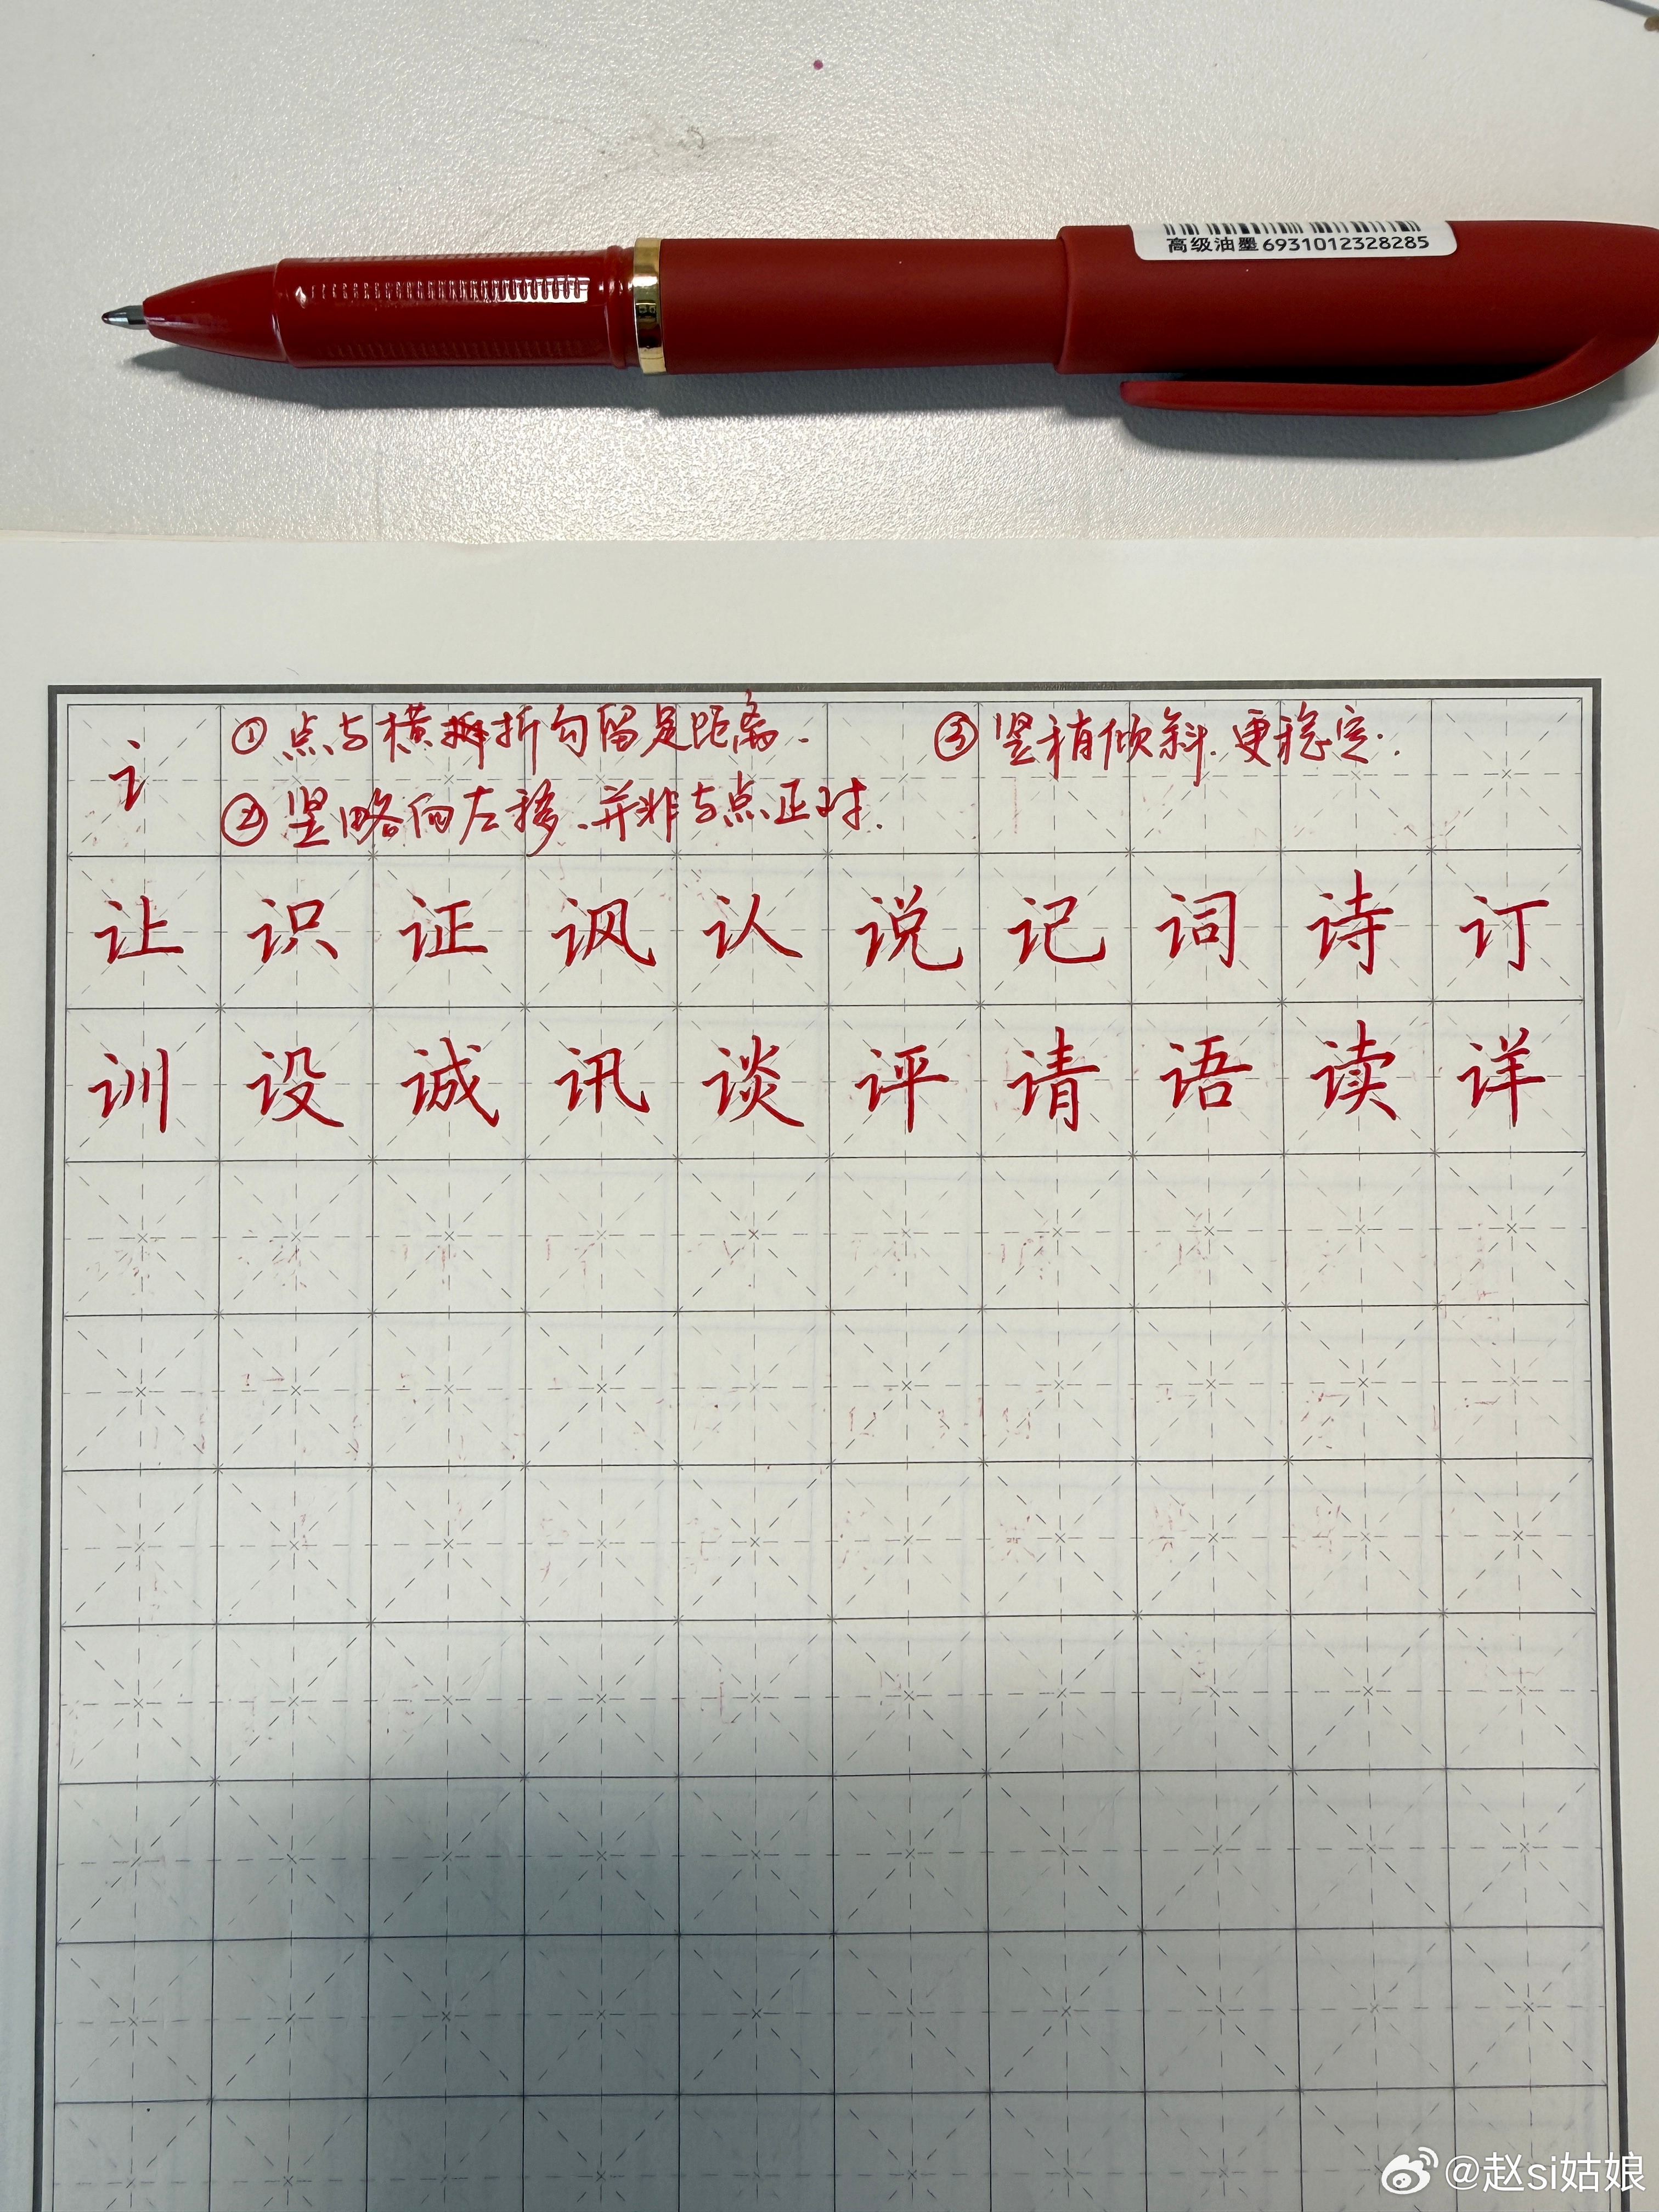 高级油墨6931012328285
讠 ①点与横折勾留足距离. ③竖稍倾斜.更稳定..
②竖略向左移.并非与点正对.
让识证讽认说记词诗订
训设诚讯谈评请语读详
@赵si姑娘